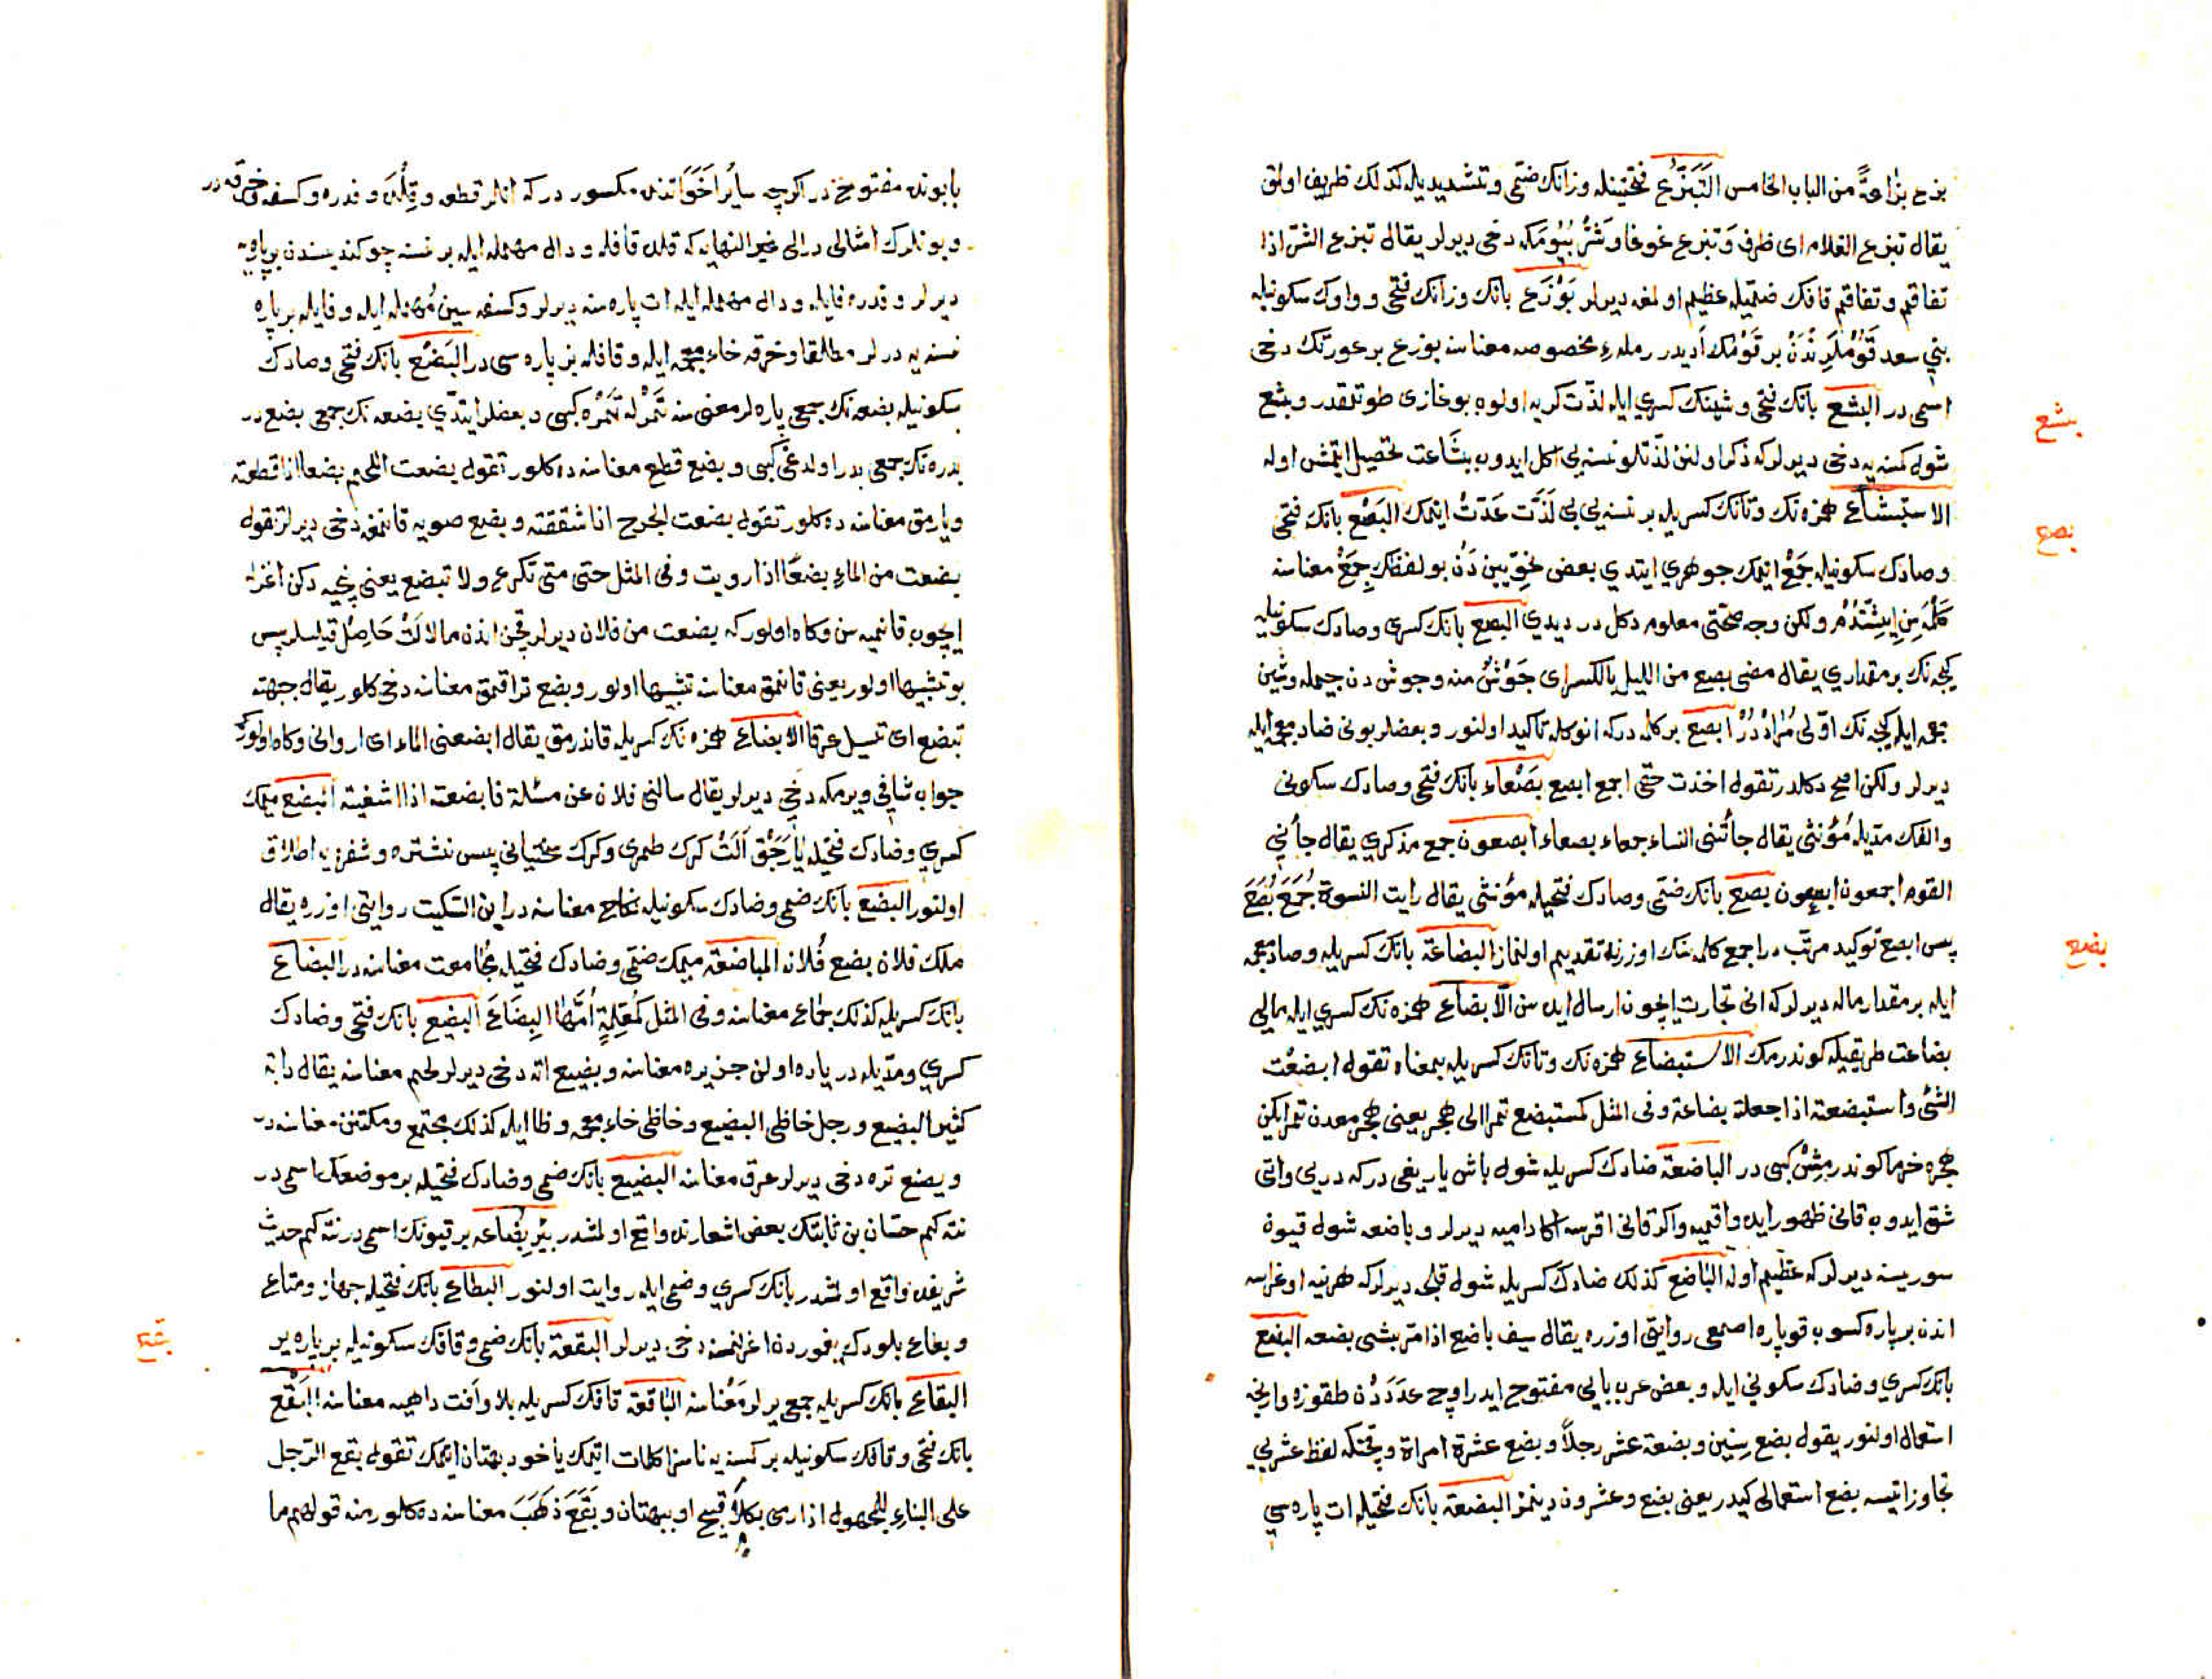 بزع بزاعةً من الباب الخامس التَبَزُّع فتحتینله وزانك ضمی وتشدیدیله كذلك ظریف اولمق
یقال تبزع الغلام ای ظرف وتبزع غوغا وشر بیومكه دخی دیرلر یقال تبزع الشر اذا
تفاقم وتفاقم قافك ضمیله عظیم اولمغه دیرلر بَوْزَع بانك وزانك فتحی وواوك سكونیله
بنی سعد قومندن بر قومك ادیدر رمله مخصوصه معناسنه بوزع بر عورتك دخی
اسمی در البشع بانك فتحی وشینك كسری ایله لذت كریه اولوب بوغازی طوتمقدر وبشع
بشع
شول كمسنه یه دخی دیرلر كه ذكر اولنن لذتلو نسنه یی اكل ایدوب بشاعت تحصیل ایتمش اوله
الاستبشاع همزه نك وتانك كسریله بر نسنه یی بی لذت عد ایتمك البَصْع بانك فتحی
بصع
وصادك سكونیله جمع ایتمك جوهری ایتدی بعض نحویین دن بو لفظك جمع معناسنه
كلمه سن ایشتدم ولكن وجه صحتی معلوم دكل در دیدی البصع بانك كسری وصادك سكونیله
كیجه نك بر مقداری یقال مضی بصع من اللیل بالكسر ای جوش منه وجوش دن جیمله وشین
معجمه ایله كیجه نك اولی مراددر ابصع بر كلمه دركه انوكله تاكید اولنور وبعضلر بونی ضاد معجمه ایله
دیرلر ولكن اصح دكلدر تقول اخذت حقی اجمع ابصع بَصْعاء بانك فتحی وصادك سكونی
والفك مدیله مؤنثی یقال جائتنی النساء جمعاء بصعاء ابصعون جمع مذكری یقال جائنی
القوم اجمعون ابصعون بصع بانك ضمی وصادك فتحیله مؤنثی یقال رایت النسوة جُمَعَ بُصَعَ
پس ابصع توكید مرتب در اجمع كلمه سنك اوزرینه تقدیم اولنماز البضاعة بانك كسریله وضاد معجمه
بضع
ایله بر مقدار ماله دیرلر كه انی تجارت ایچون ارسال ایده سن الابضاع همزه نك كسری ایله مالی
بضاعت طریقیله كوندرمك الاستبضاع همزه نك وتانك كسریله بمعناه تقول ابضعت
الشئ واستبضعته اذا جعلته بضاعة وفی المثل كمستبضع تمر الی هجر یعنی هجر معدن تمر ایكن
هجره خرما كوندرمش كبی در الباضعة ضادك كسریله شول باش یاریغی دركه دریی واتی
شق ایدوب قانی ظهور ایده واقمیه واكر قانی اقرسه اكا دامیه دیرلر وباضعه شول قیون
سوریسنه دیرلر كه عظیم اوله الباضع كذلك ضادك كسریله شول قلجه دیرلر كه هر نیه اوغرسه
اندن بر پاره كسوب قوپاره اصمعی روایتی اوزره یقال سیف باضع اذا مر بشی بضعه البضع
بانك كسری وضادك سكونی ایله وبعض عرب بایی مفتوح ایدر اوچ عددن طقوزه وارنجه
استعمال اولنور یقول بضع سنین وبضعة عشر رجلاً وبضع عشرة امراة وچنكه لفظ عشریی
تجاوز ایتسه بضع استعمالی كیدر یعنی بضع وعشرون دینمز البضعة بانك فتحیله ات پاره سی
بابونده مفتوح در اكرچه سائر اخواتنده مكسور دركه انلر قطعه وفلذه وفدره وكسفه وخرقه در
وبونلرك امثالی در الی غیر النهایه كه فلذه فایله وذال معجمه ایله بر نسنه چوكندیسندن بر پاره یه
دیرلر وفدره فایله ودال مهمله ایله ات پاره سنه دیرلر وكسفه سین مهمله ایله وفایله بر پاره
نسنه یه دیرلر مطلقا وخرقه خاء معجمه ایله وقافله بز پاره سی در البَضْع بانك فتحی وضادك
سكونیله بضعه نك جمعی پاره لر معنی سنه تمر له تمره كبی وبعضلر ایتدی بضعه نك جمعی بضع در
بدره نك جمعی بدر اولدغی كبی وبضع قطع معناسنه ده كلور تقول بضعت اللحم بضعا اذا قطعته
ویارمق معناسنه ده كلور تقول بضعت الجرح اذا شققته وبضع صویه قانمغه دخی دیرلر تقول
بضعت من الماء بضعاً اذا رویت وفی المثل حتی متی تكرع ولا تبضع یعنی نیجه دكن اغزله
ایچوب قانمیه سن وكاه اولور كه بضعت من فلان دیرلر قچن اندن ملالت حاصل قیلسلر پس
بو تشبیها اولور یعنی قانمق معناسنه تشبیها اولور وبضع تر اقمق معناسنه دخی كلور یقال جبهته
تبضع ای تسیل عرقا الابضاع همزه نك كسریله قاندرمق یقال ابضعنی الماء ای اروانی وكاه اولور كه
جواب شافی ویرمكه دخی دیرلر یقال سالنی فلان عن مسئلة فابضعته اذا اشفیته المبضع میمك
كسری وضادك فتحیله یاره جق آلت كرك طمری وكرك سختیانی پس نشتره وشفره یه اطلاق
اولنور البضع بانك ضمی وضادك سكونیله نكاح معناسنه در ابن السكیت روایتی اوزره یقال
ملك فلان بضع فلانه المباضعة میمك ضمی وضادك فتحیله مجامعت معناسنه در البضاع
بانك كسریله كذلك جماع معناسنه وفی المثل كمعلمةٍ أمّها البِضَاعَ البضیع بانك فتحی وضادك
كسری ومدیله دریاده اولن جزیره معناسنه وبضیع اته دخی دیرلر لحم معناسنه یقال دابة
كثیر البضیع ورجل خاظی البضیع وخاظی خاء معجمه وظا ایله كذلك مجتمع ومكتنز معناسنه در
وبضع تره دخی دیرلر عرق معناسنه البضیع بانك ضمی وضادك فتحیله بر موضعك اسمی در
نته كم حسان بن ثابتك بعض اشعارنده واقع اولمشدر بئر بضاعه بر قیونك اسمی در نته كم حدیث
شریفده واقع اولمشدر بانك كسری وضمی ایله روایت اولنور البطاع بانك فتحیله جهاز ومتاع
دخی دیرلر البقعة بانك ضمی وقافك سكونیله بر پاره یر
بقع
البقاع بانك كسریله جمعی یرلر معناسنه الباقعة قافك كسریله بلا وآفت داهیه معناسنه البَقْع
بانك فتحی وقافك سكونیله بر كمسنه یه ناسزا كلمات ایتمك یاخود بهتان ایتمك تقول بقع الرجل
علی البناء للمجهول اذا رمی بكلام قبیح او ببهتان وبَقَعَ ذَهَبَ معناسنه ده كلور منه قولهم ما